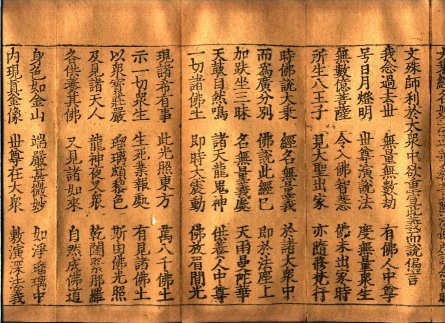 文殊師利於大衆中欲重宣此義而說偈言
我念過去世 無量無數劫 有佛人中尊
号日月燈明 世尊演說法 度無量衆生
無數億菩薩 令入佛智慧 佛未出家時
所生八王子 見大聖出家 亦隨修梵行
時佛說大乘 經名無量義 於諸大衆中
而爲廣分別 佛說此經已 即於法座上
加趺坐三昧 名無量義處 天雨曼陀華
天鼓自然鳴 諸天龍鬼神 供養人中尊
一切諸佛土 即時大震動 佛放眉間光
現諸希有事 此光照東方 萬八千佛土
示一切衆生 生死業報處 有見諸佛土
以衆寶莊嚴 瑠璃頗梨色 斯由佛光照
及見諸天人 龍神夜叉衆 乾闥緊那羅
各供養其佛 又見諸如來 自然成佛道
身色如金山 端嚴甚微妙 如淨瑠璃中
内現真金像 世尊在大衆 敷演深法義